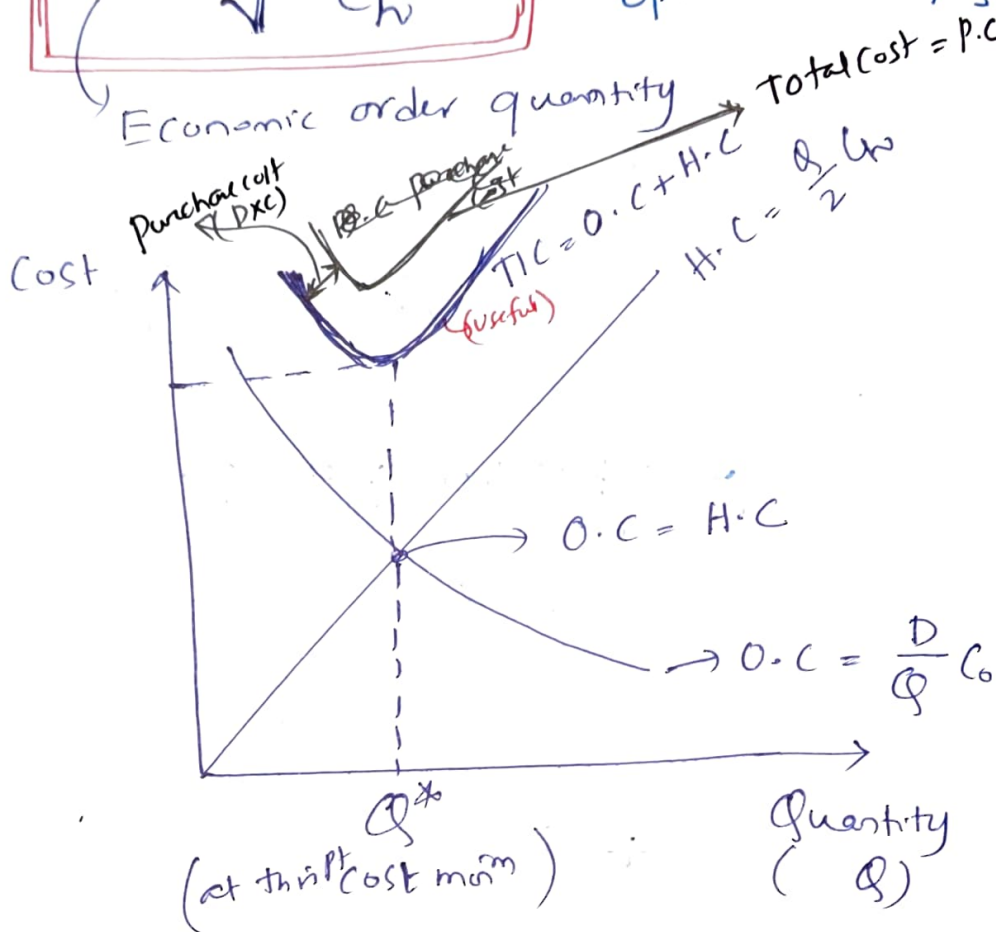 Economic order quantity
Total Cost = P.C
Purchase cost
(D×C)
Purchase
Cost
TIC = O.C + H.C
(useful)
H.C = Q/2 Ch
Cost
O.C = H.C
O.C = D/Q Co
Q*
(at this pt cost minm)
Quantity
(Q)